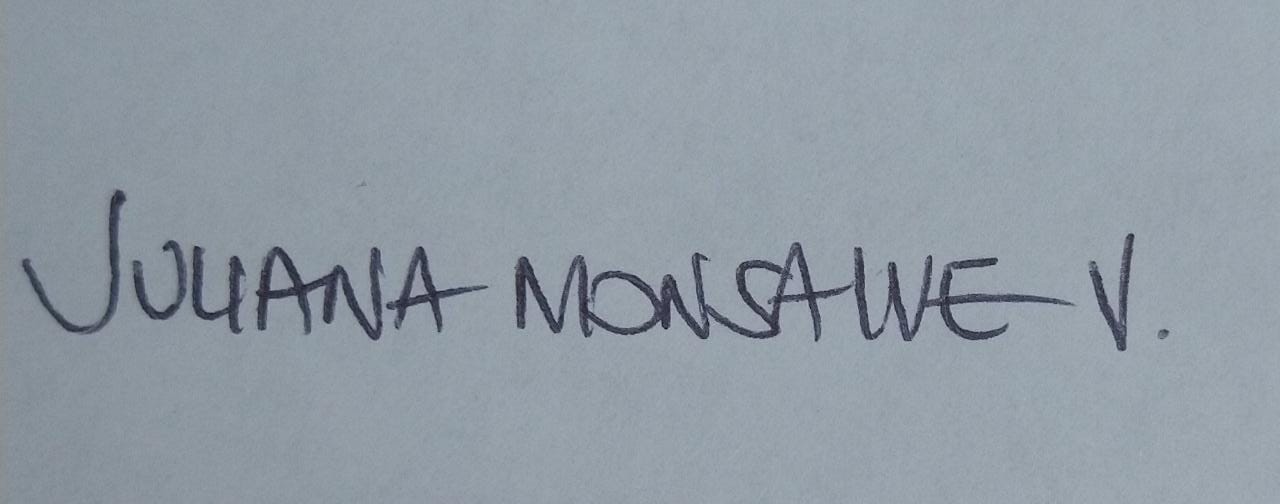 JULIANA MONSALVE V.